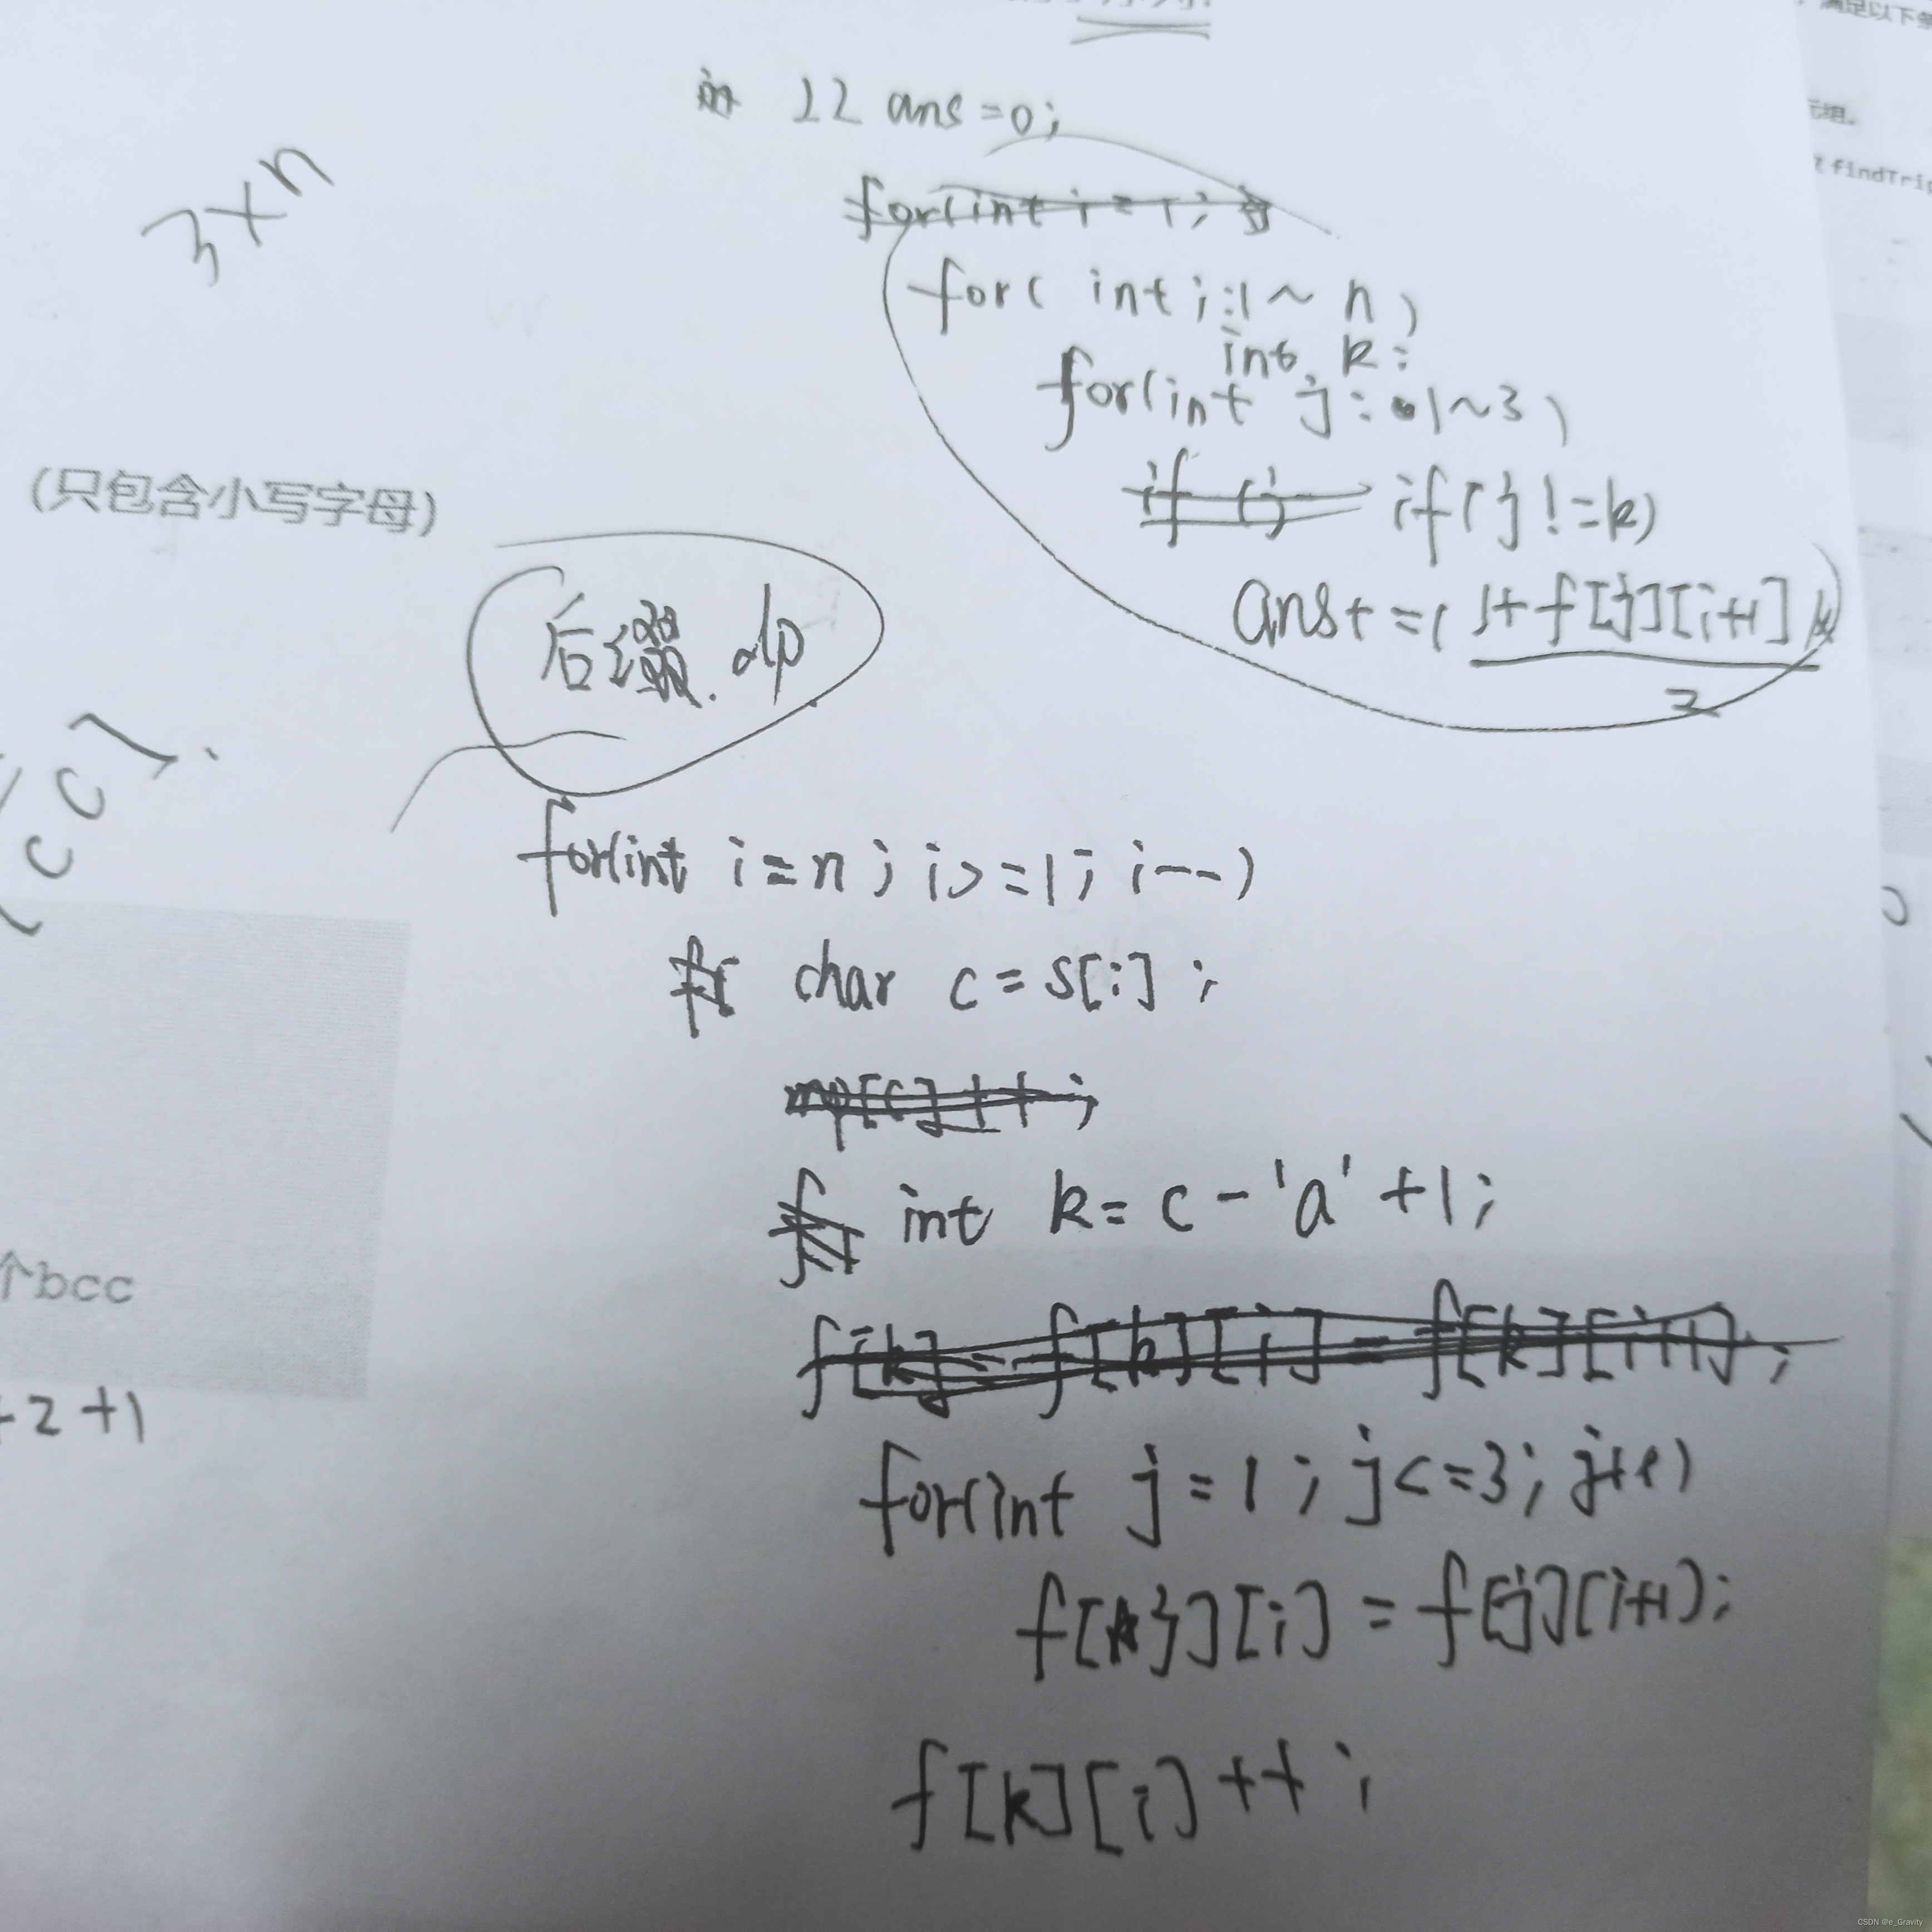 满足以下条
ll ans=0;
元组。
findTrip
3×n
for(int i=1;
for( int i:1~n)
int k:
for(int j:1~3)
(只包含小写字母)
if (j if(j!=k)
ans+=( 1+f[j][i+1]
2
后缀.dp
for(int i=n; i>=1; i--)
char c=s[i];
mp[c]++;
int k=c-'a'+1;
个bcc
f[k]=f[k][i]=f[k][i+1];
+2+1
for(int j=1; j<=3; j++)
f[j][i]=f[j][i+1];
f[k][i]++;
CSDN @e_Gravity